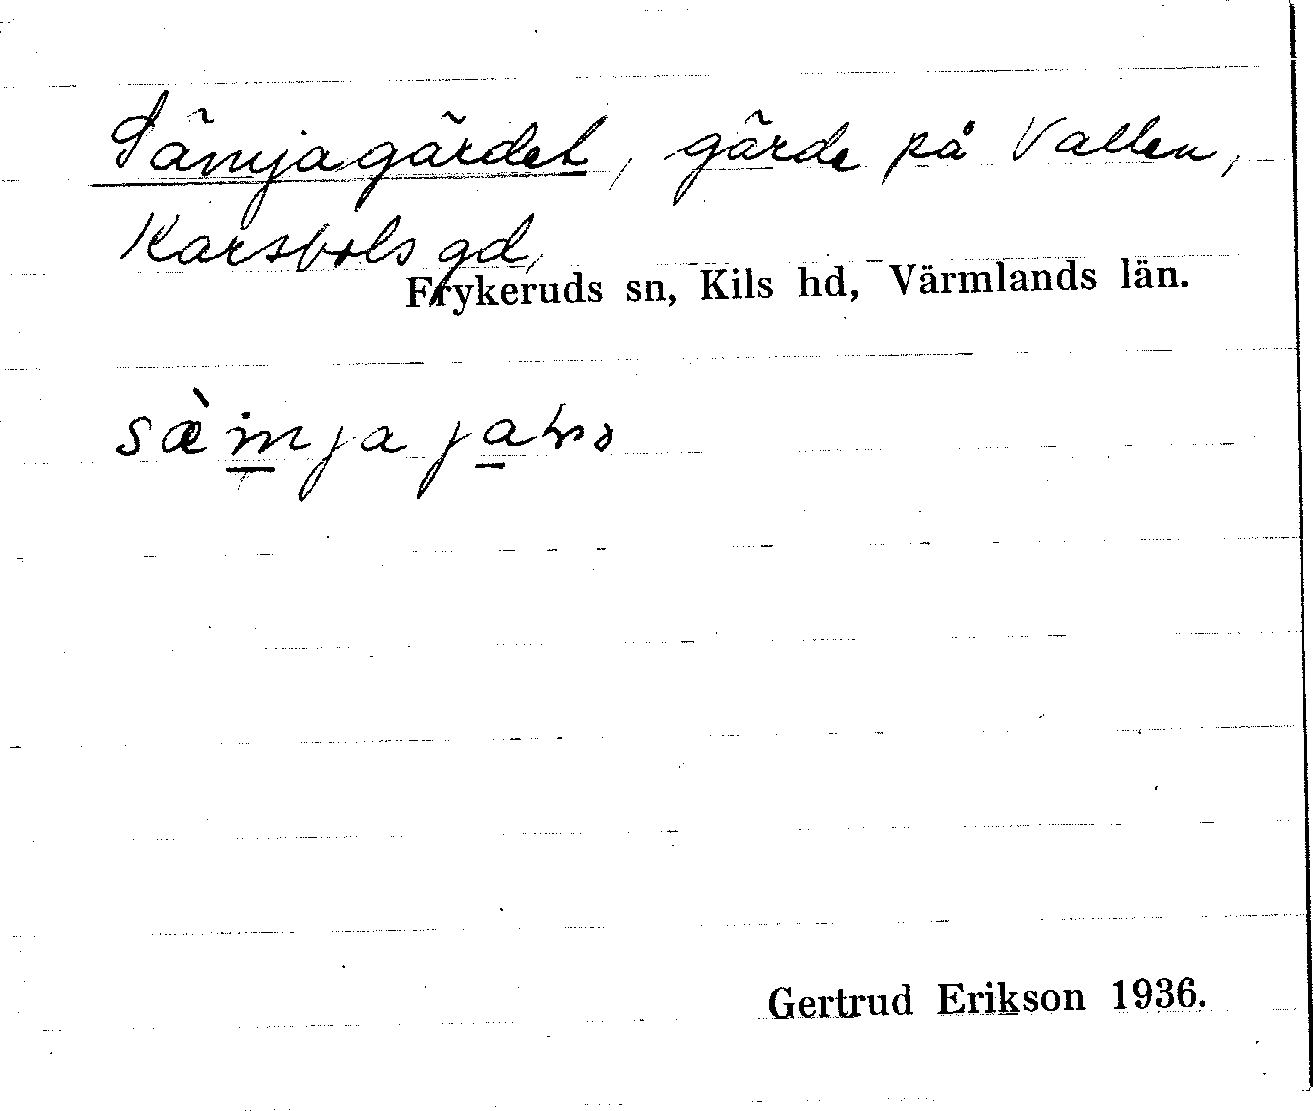 Sämjagärdet, gärde på Vallen,
Karsbols gd,
Frykeruds sn, Kils hd, Värmlands län.
Gertrud Erikson 1936.